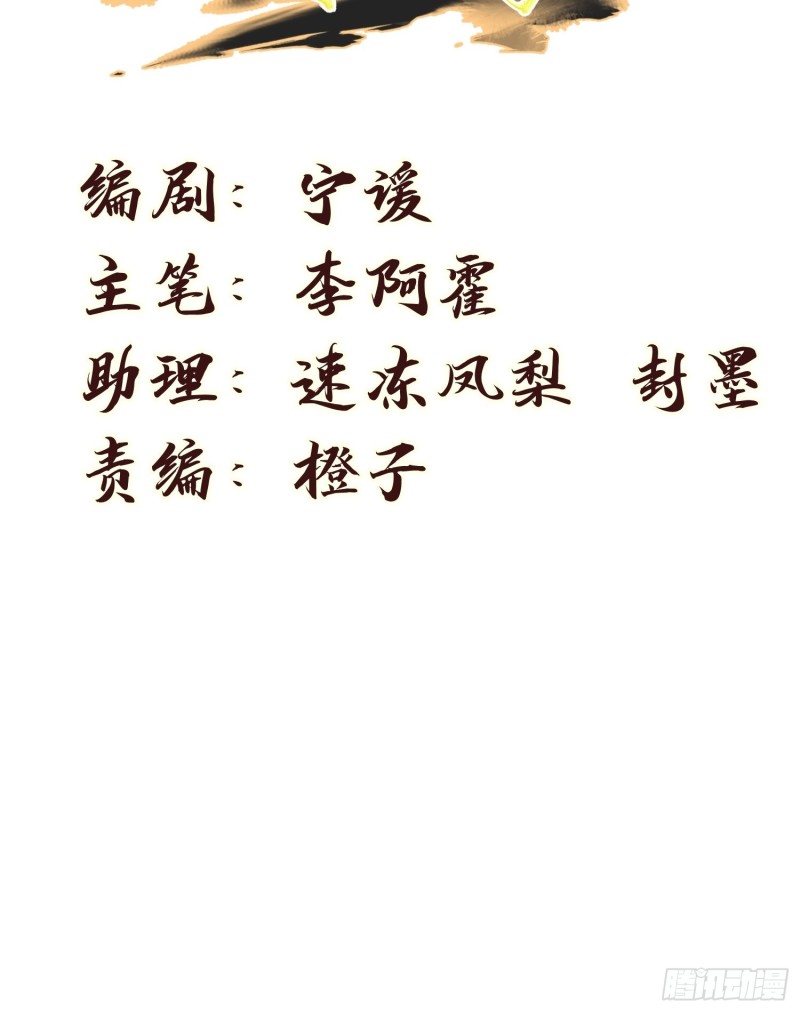 编剧：宁谖
主笔：李阿霍
助理：速冻凤梨 封墨
责编：橙子
腾讯动漫